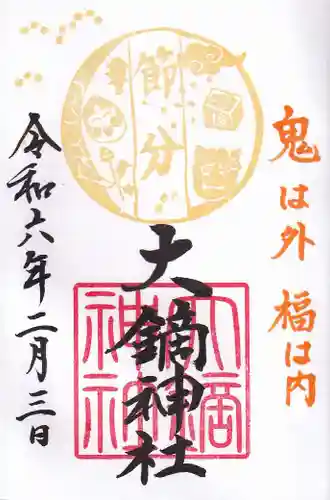 鬼は外 福は内
節分
大鏑神社
大鏑神社
令和六年二月三日